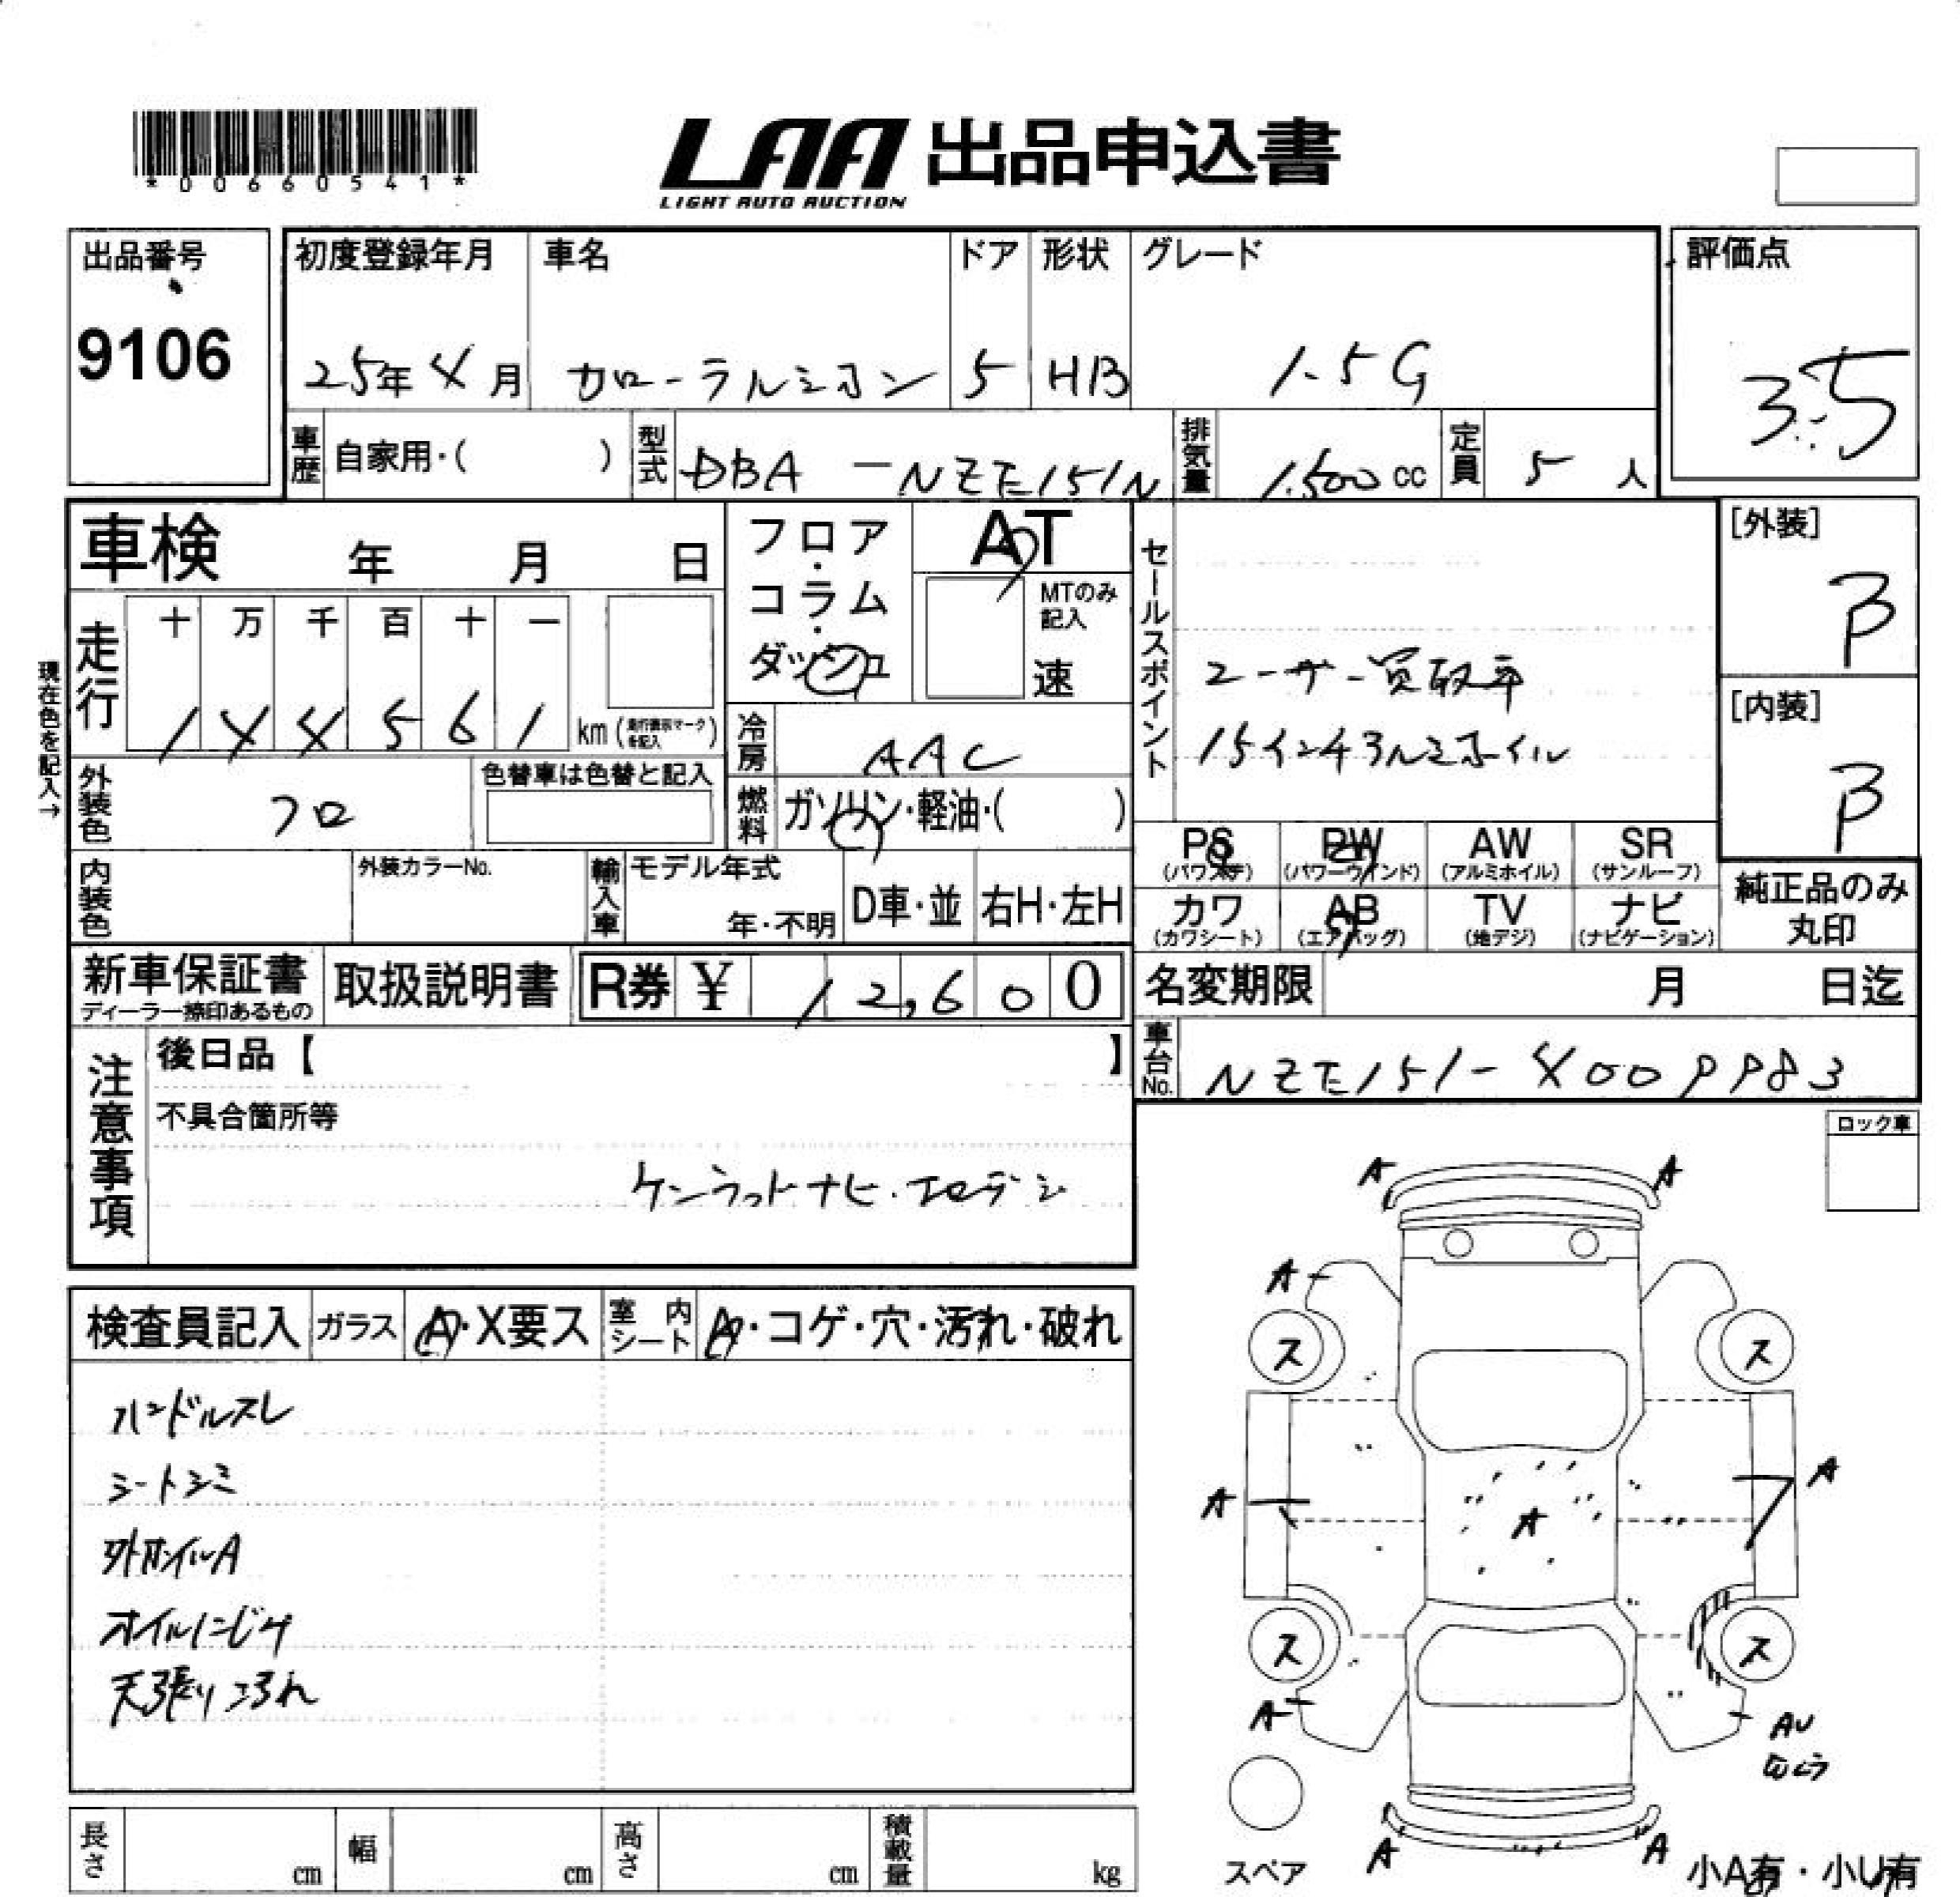 *00660541*
LAA 出品申込書
LIGHT AUTO AUCTION
出品番号
9106
初度登録年月 車名 ドア 形状 グレード
25年4月 カローラルミオン 5 HB 1.5G
評価点
3.5
車歴 自家用・( ) 型式 DBA-NZE151N 排気量 1.500cc 定員 5人
車検 年 月 日
フロア・コラム・ダッシュ
AT
MTのみ記入
速
セールスポイント
ユーザー買取車
15インチアルミホイル
[外装]
B
[内装]
B
現在色を記入→
走行 十 万 千 百 十 一
144561 km(走行表示マークを記入)
冷房 AAC
外装色 クロ 色替車は色替と記入
燃料 ガソリン・軽油・( )
内装色 外装カラーNo. 輸入車 モデル年式 年・不明 D車・並 右H・左H
PS (パワステ) PW (パワーウインド) AW (アルミホイル) SR (サンルーフ)
カワ (カワシート) AB (エアバッグ) TV (地デジ) ナビ (ナビゲーション)
純正品のみ丸印
新車保証書 ディーラー捺印あるもの 取扱説明書 R券 ¥ 12,600
名変期限 月 日迄
車台No. NZE151-4009983
注意事項
後日品【 】
不具合箇所等
ケンウッドナビ・フルデジ
ロック車
検査員記入 ガラス A・X要ス 室内シート A・コゲ・穴・汚れ・破れ
ハンドルスレ
シートシミ
外ホイルA
オイルにじみ
天張り汚れ
A A
A
ス ス
A A
A
ス ス
A AU
A A
スペア
小A有・小U有
長さ cm 幅 cm 高さ cm 積載量 kg